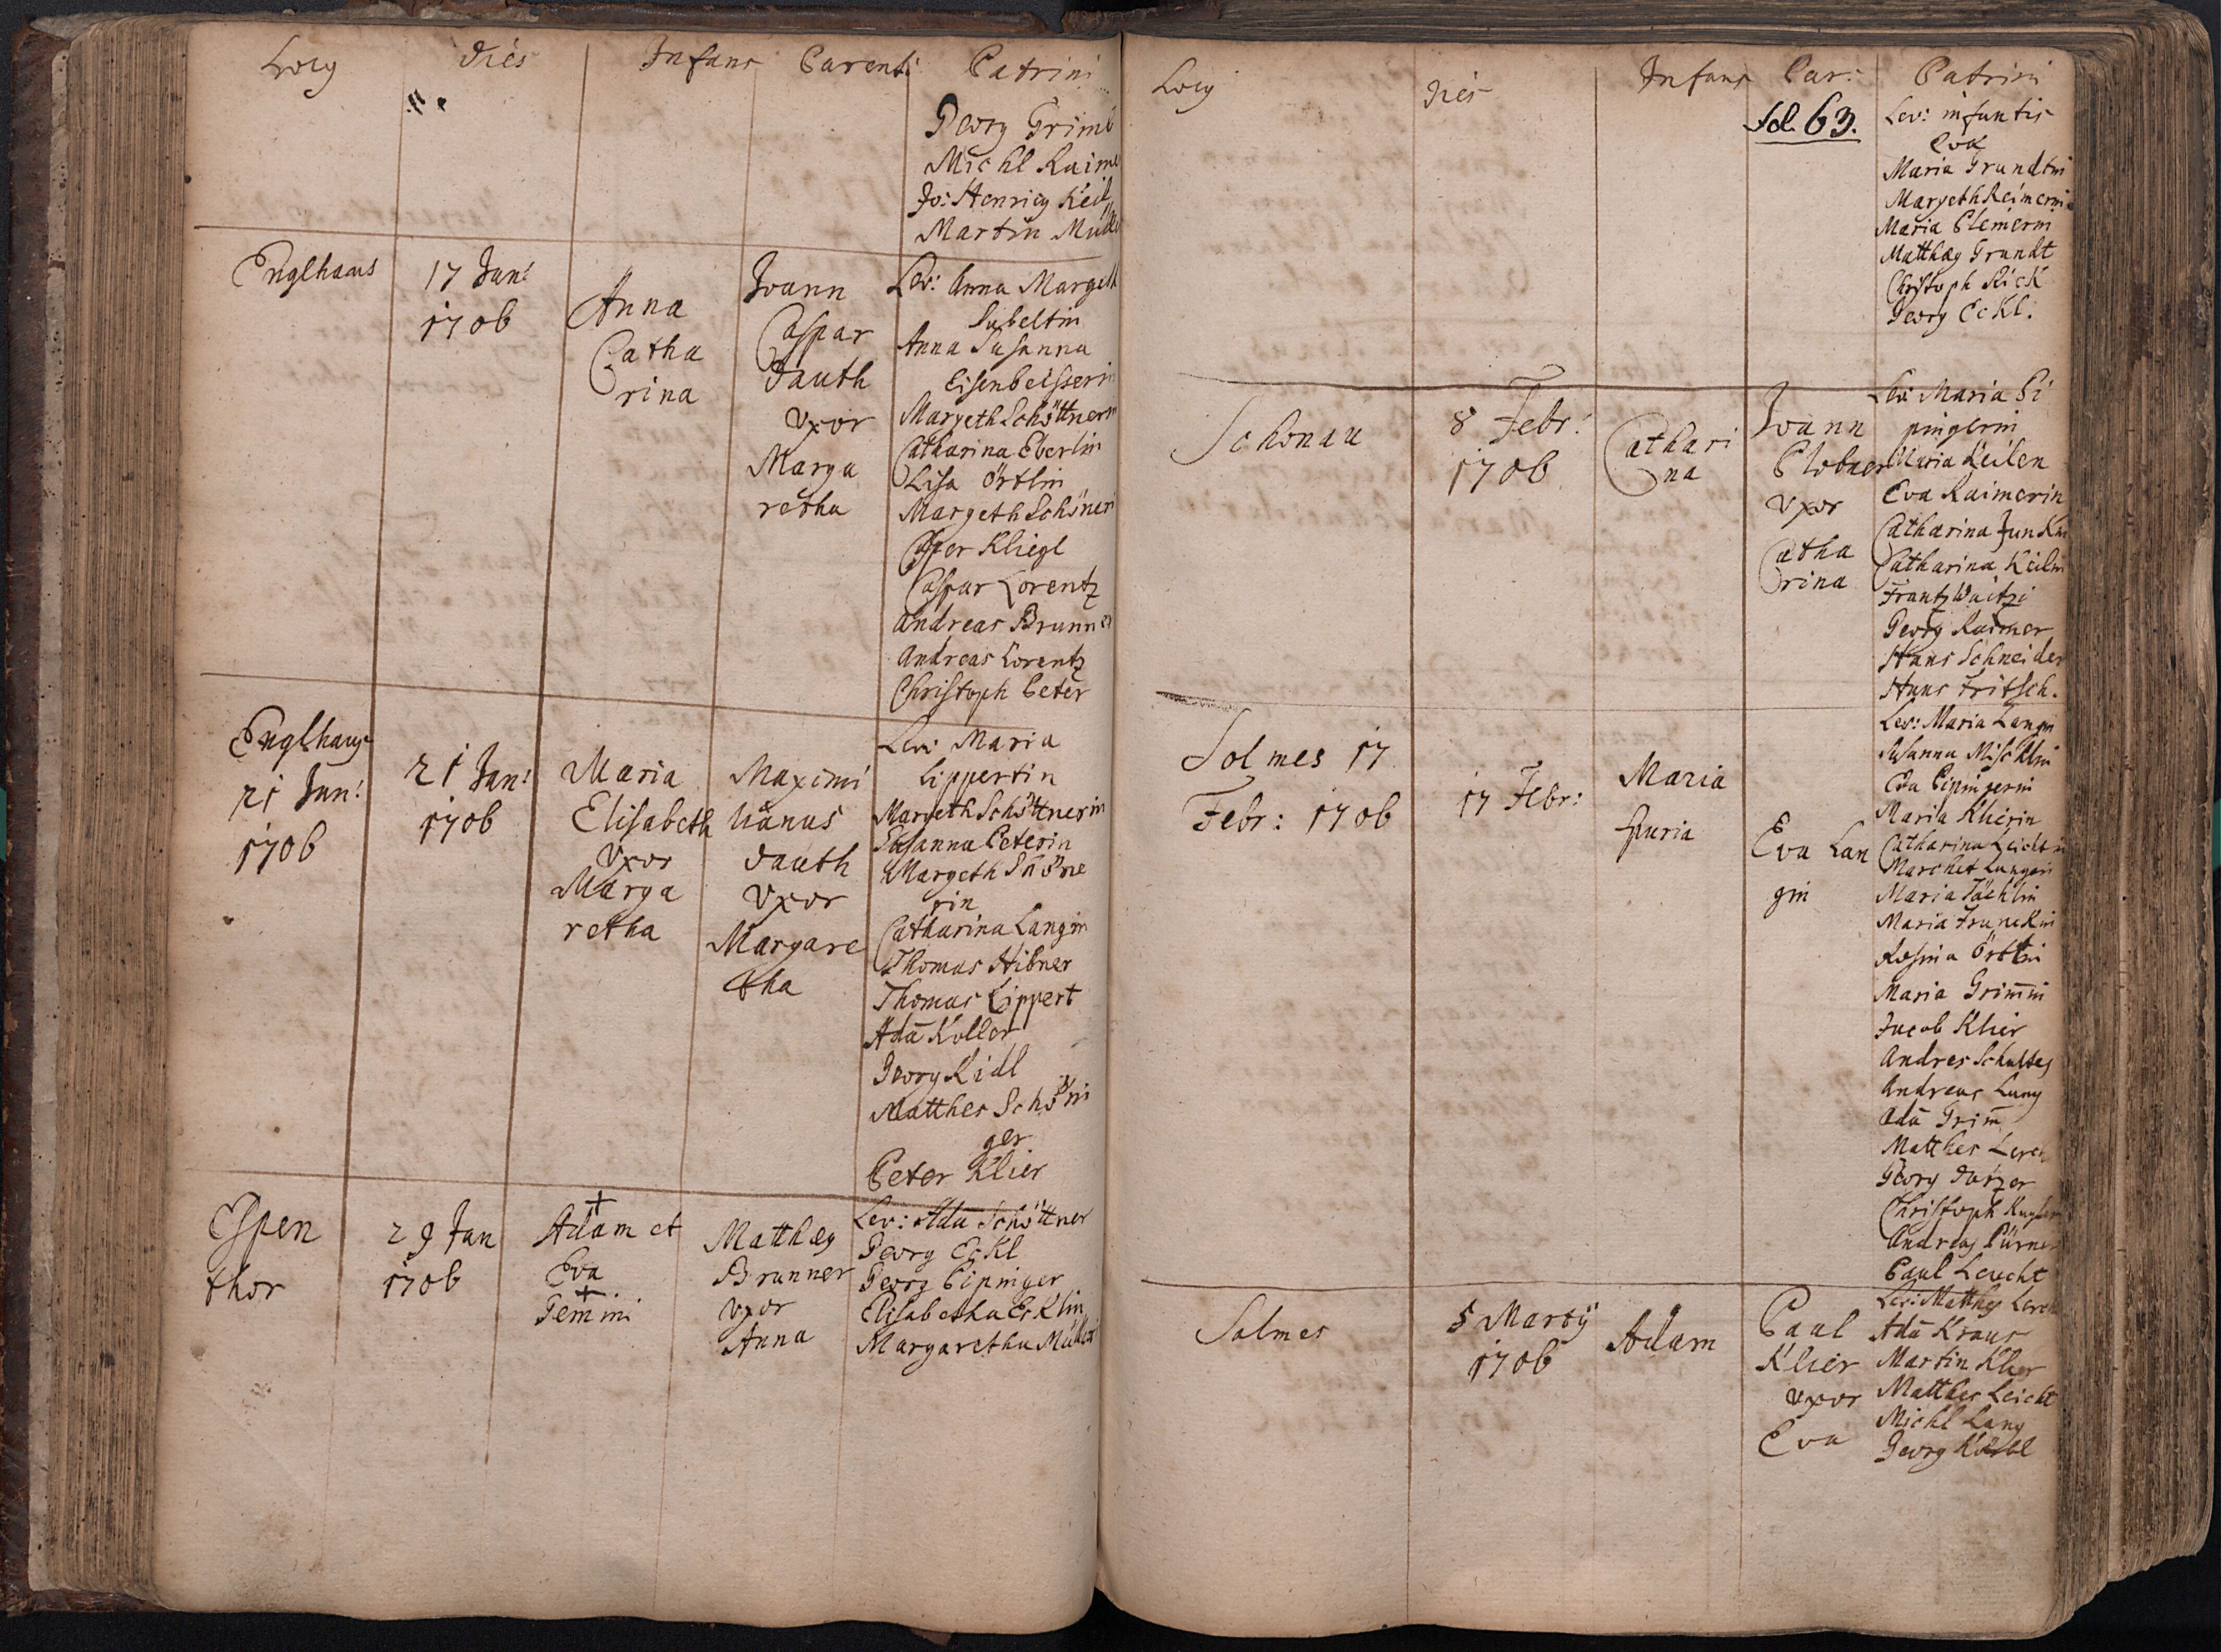 Locus Dies Infans Parent: Patrini
Georg Grim
Michl Raimer
Jo: Henricus Keil
Martin Müller
Englhaus
17 Jan:
1706
Anna
Catha
rina
Joann
Caspar
Dauth
Vxor
Marga
retha
Lev: Anna Margeth
Anna Susanna
Eisenbeisserin
Margeth Schöttnerin
Catharina Eberlin
Lisa Örtlin
Margeth Schönerin
Casper Kliegl
Caspar Lorentz
Andreas Brunner
Andreas Lorentz
Christoph Peter
Englhaus
21 Jan:
1706
21 Jan:
1706
Maria
Elisabeth
Vxor
Marga
retha
Maximi
lianus
Dauth
Vxor
Margare
tha
Lev: Maria
Lippertin
Margeth Schöttnerin
Susanna Peterin
Margeth Schöne
rin
Catharina Langin
Thomas Hibner
Thomas Lippert
Adā Koller
Georg Ridl
Matthes Schönin
ger
Peter Klier
Espen
thor
29 Jan
1706
Adam et
Eva
Gemini
Matthæus
Brunner
vxor
Anna
Lev: Adā Schöttner
Georg Eckl
Georg Pipinger
Elisabetha Ecklin
Margaretha Müllerin
Locus Dies Infans Par: Patrini
fol. 63.
Lev: infantis
Eva
Maria Grundtin
Margeth Reimerin
Maria Plemerin
Matthæus Grundt
Christoph Rick
Georg Eckl.
Schönau
8 Febr:
1706
Cathari
na
Joann
Plobner
vxor
Catha
rina
Lev: Maria Pi
pingerin
Maria Keilen
Eva Raimerin
Catharina Junkin
Catharina Keilin
Frantz
Georg Raimer
Hans Schneider
Hans Fritsch.
Solmes 17
Febr: 1706
17 Febr:
Maria
spuria
Eva Lan
gin
Lev: Maria Langin
Susanna Mischlin
Eva Pipingerin
Maria Klierin
Catharina Leichtin
Marchet Langin
Maria
Maria Franckin
Rosina Örtlin
Maria Grim̄in
Jacob Klier
Andres Schultes
Andreas Lang
Adā Grim̄
Matthes Lerch
Georg
Christoph Kugler
Andreas Pürner
Paul Leucht
Solmes
5 Martÿ
1706
Adam
Paul
Klier
vxor
Eva
Lev: Matthes Lerch
Adā Kraus
Martin Klier
Matthes Leicht
Michl Lang
Georg